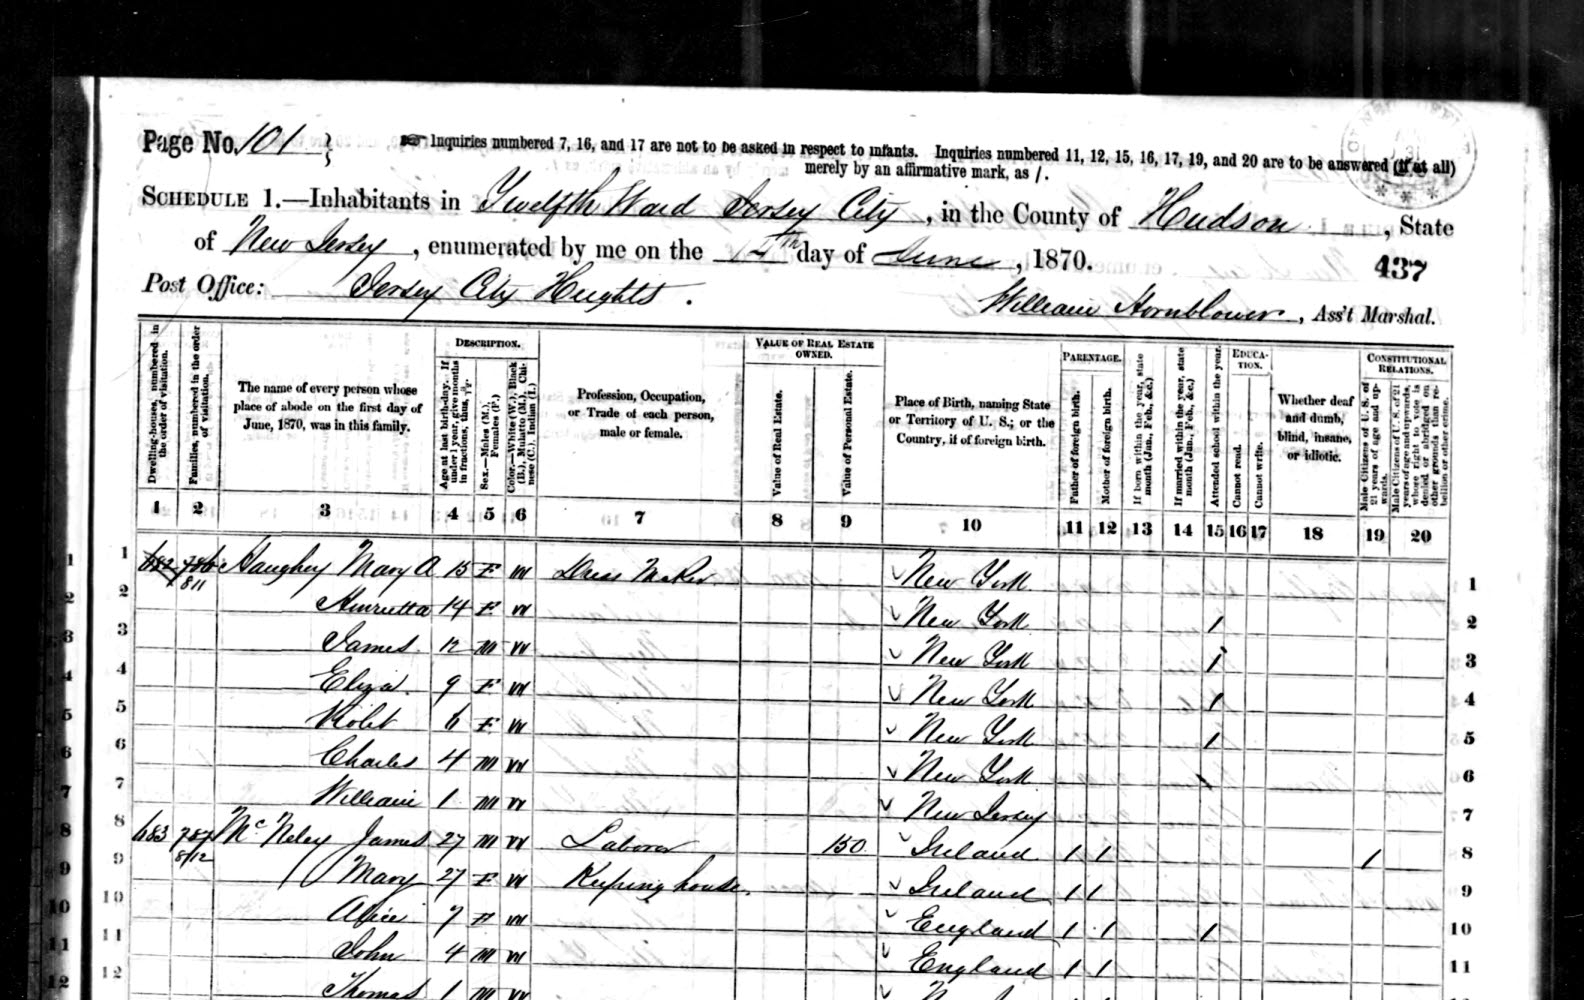 Page No. 101 }
☞ Inquiries numbered 7, 16, and 17 are not to be asked in respect to infants. Inquiries numbered 11, 12, 15, 16, 17, 19, and 20 are to be answered (if at all)
merely by an affirmative mark, as /.
SCHEDULE 1.—Inhabitants in Twelfth Ward Jersey City, in the County of Hudson, State
of New Jersey, enumerated by me on the day of June, 1870.
437
Post Office: Jersey City Heights.
William Hornblower, Ass't Marshal.
Dwelling-houses, numbered in the order of visitation.
Families, numbered in the order of visitation.
The name of every person whose place of abode on the first day of June, 1870, was in this family.
DESCRIPTION.
Age at last birth-day. If under 1 year, give months in fractions, thus, 3/12.
Sex.—Males (M.), Females (F.)
Color.—White (W.), Black (B.), Mulatto (M.), Chinese (C.), Indian (I.)
Profession, Occupation, or Trade of each person, male or female.
VALUE OF REAL ESTATE OWNED.
Value of Real Estate.
Value of Personal Estate.
Place of Birth, naming State or Territory of U. S.; or the Country, if of foreign birth.
PARENTAGE.
Father of foreign birth.
Mother of foreign birth.
If born within the year, state month (Jan., Feb., &c.)
If married within the year, state month (Jan., Feb., &c.)
Attended school within the year.
EDUCATION.
Cannot read.
Cannot write.
Whether deaf and dumb, blind, insane, or idiotic.
CONSTITUTIONAL RELATIONS.
Male Citizens of U. S. of 21 years of age and upwards.
Male Citizens of U. S. of 21 years of age and upwards, whose right to vote is denied or abridged on other grounds than rebellion or other crime.
1 2 3 4 5 6 7 8 9 10 11 12 13 14 15 16 17 18 19 20
1 1 682 786 Haughey Mary A 15 F W Dress Maker New York 1
811
2 2 Henrietta 14 F W New York / 2
3 3 James 12 M W New York / 3
4 4 Eliza 9 F W New York / 4
5 5 Violet 6 F W New York / 5
6 6 Charles 4 M W New York 6
7 7 William 1 M W New Jersey 7
8 8 683 787 McNeley James 27 M W Laborer 150 Ireland / / / 8
812
9 9 Mary 27 F W Keeping house Ireland / / 9
10 10 Alice 7 F W England / / / 10
11 11 John 4 M W England / / 11
12 12 Thomas 1 M W